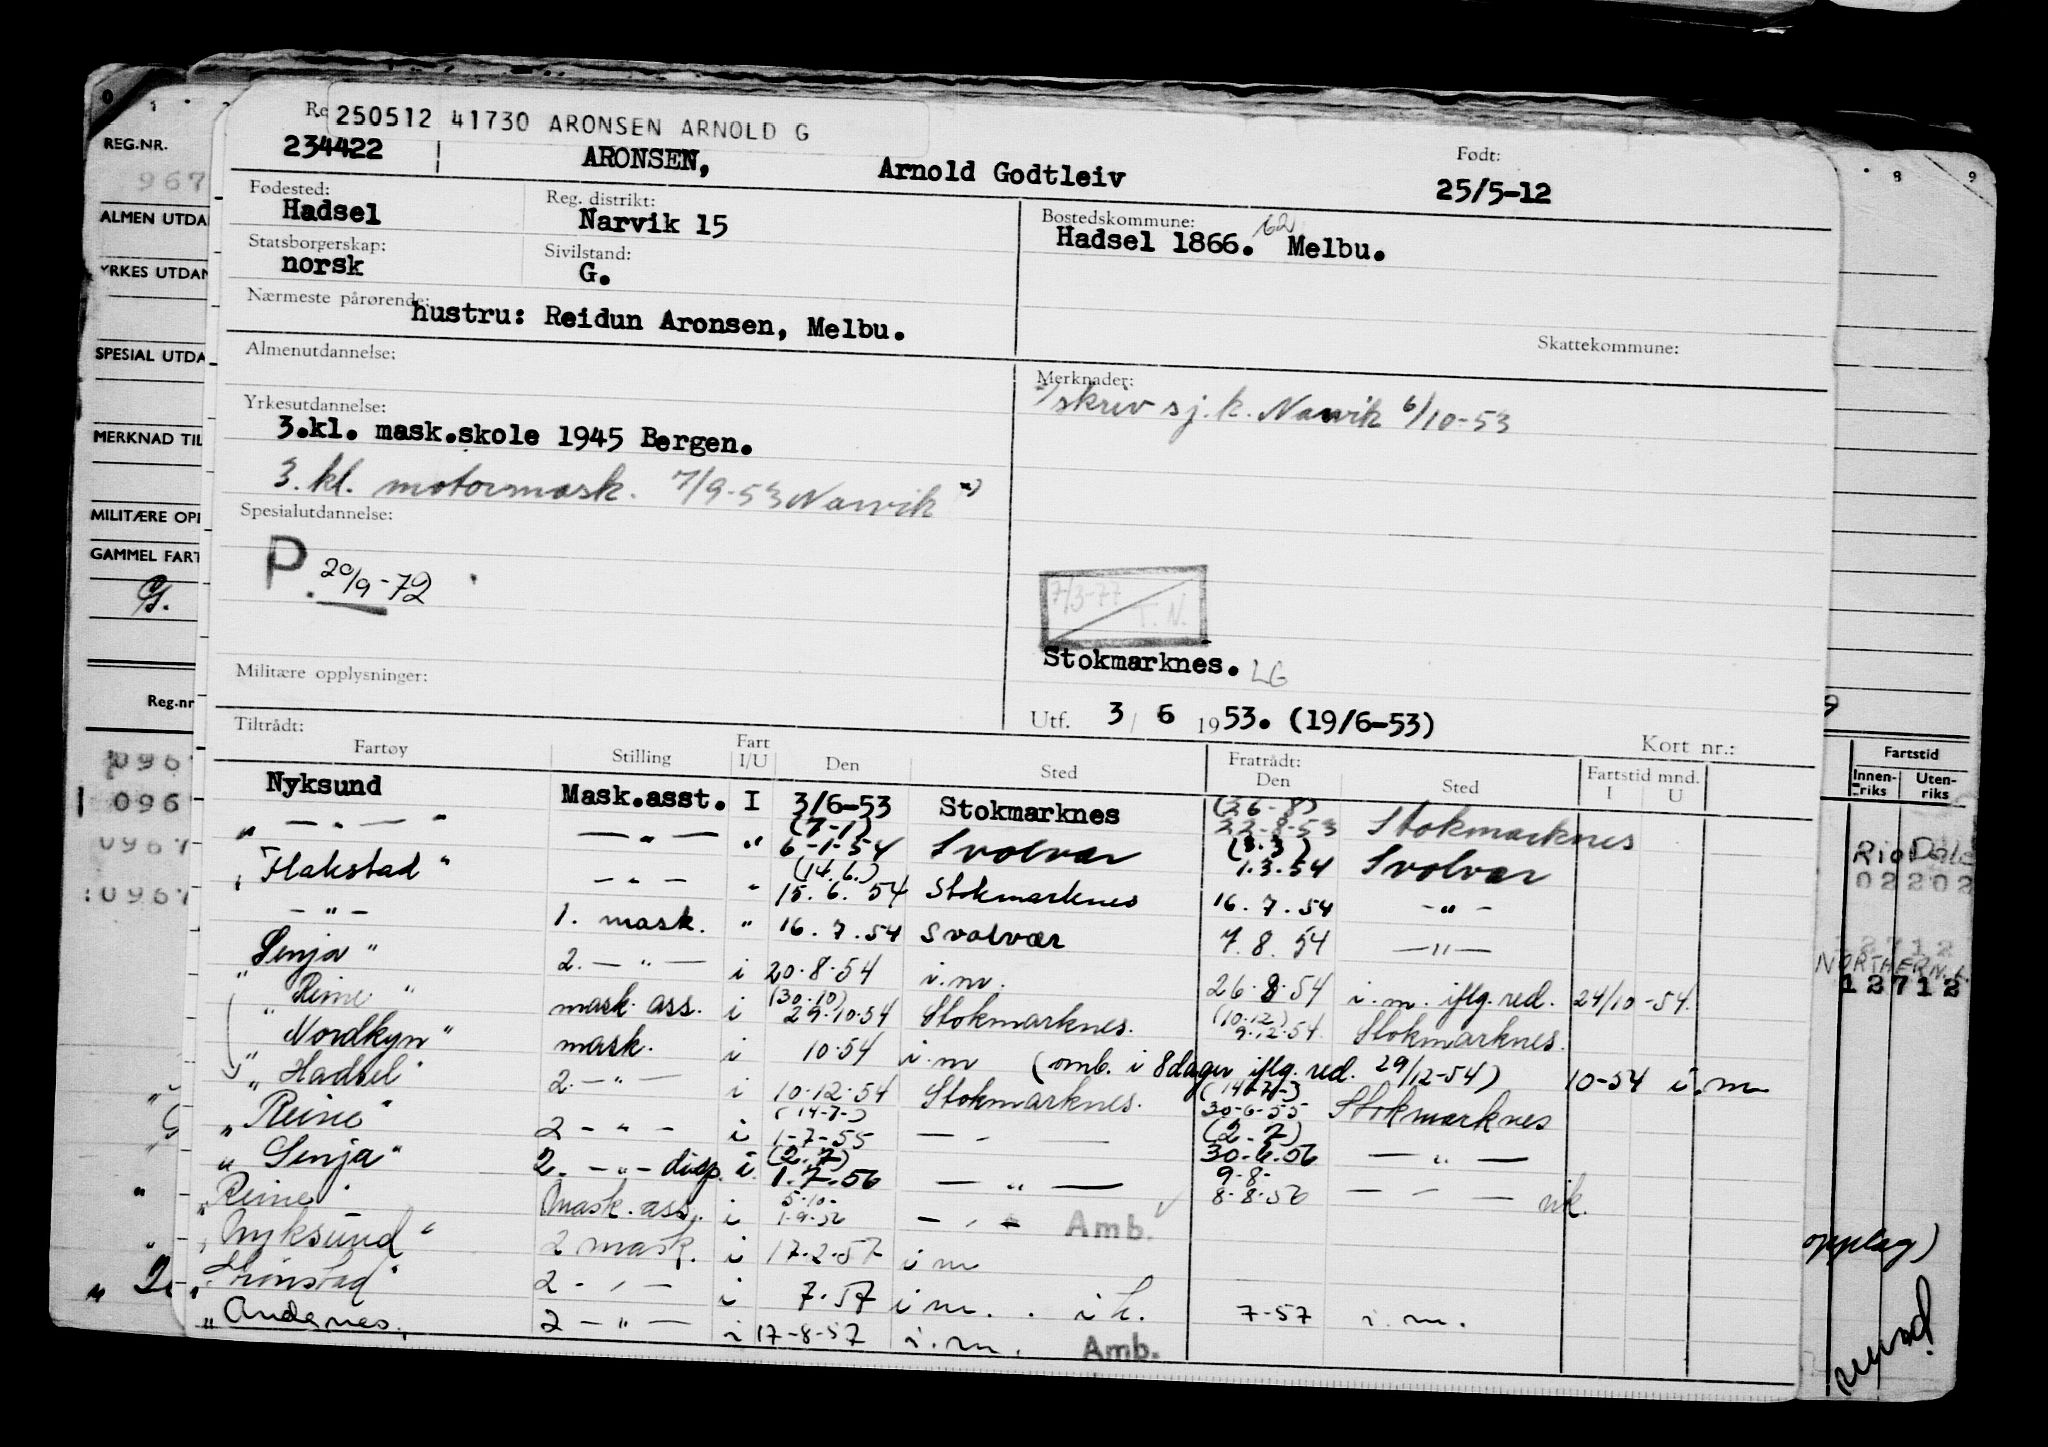 250512 41730 ARONSEN ARNOLD G
234422 ARONSEN, Arnold Godtleiv Født: 25/5-12
REG.NR.
967
ALMEN UTDA
YRKES UTDAN
SPESIAL UTDA
MERKNAD TIL
MILITÆRE OPP
GAMMEL FART
G.
Reg.nr
Fødested: Hadsel
Reg. distrikt: Narvik 15
Bostedskommune: Hadsel 1866. Melbu.
Statsborgerskap: norsk
Sivilstand: G.
Nærmeste pårørende: hustru: Reidun Aronsen, Melbu.
Skattekommune:
Almenutdannelse:
Merknader:
skriv sj.k. Narvik 6/10-53
Yrkesutdannelse:
3.kl. mask.skole 1945 Bergen.
3. kl. motormask. 7/9-53 Narvik
Spesialutdannelse:
P. 20/9-72
7/3-77 T.N.
Stokmarknes. LG
Militære opplysninger:
Utf. 3/6 1953. (19/6-53)
Kort nr.:
Tiltrådt:
Fartøy Stilling Fart I/U Den Sted Fratrådt: Den Sted Fartstid mnd. I U
Nyksund Mask.asst. I 3/6-53 Stokmarknes (26-8) 22-8-53 Stokmarknes
" — " — " — " — " (7-1) 6-1-54 Svolvær (3.3) 1.3.54 Svolvær
" Flakstad " — " — " (14.6.) 15.6.54 Stokmarknes 16.7.54 — " —
— " — 1. mask. " 16.7.54 Svolvær 7.8.54 — " —
Senja " 2. — " — i 20.8.54 i.m. 26.8.54 i.m. iflg. red. 24/10-54.
" Reine " mask. ass. i (30.10) 29.10.54 Stokmarknes. (10.12) 9.12.54 Stokmarknes.
" Nordkyn " mask. i 10.54 i.m (omb. i 8 dager iflg. red. 29/12-54) 10-54 i.m
" Hadsel " 2. — " — i 10.12.54 Stokmarknes. 30-6-55 Stokmarknes
" Reine " 2 — " — i (14-7-) 1-7-55 — " — (2-7) 30.6.56 — " —
" Senja " 2. — " — disp. i. (2.7) 1.7.56 — " — 9-8- 8-8-56 — " —
" Reine " Mask. ass. i 5-10- 1-9-56 — " — Amb.
" Nyksund " 2 mask. i 17.2.57 i m
2 — " — i 7.57 i m. i h. 7-57 i.m.
" Andenes. 2 — " — i 17-8-57 i.m. Amb.
Fartstid
Innenriks Utenriks
02202
NORTHERN.L.
12712
opplag)